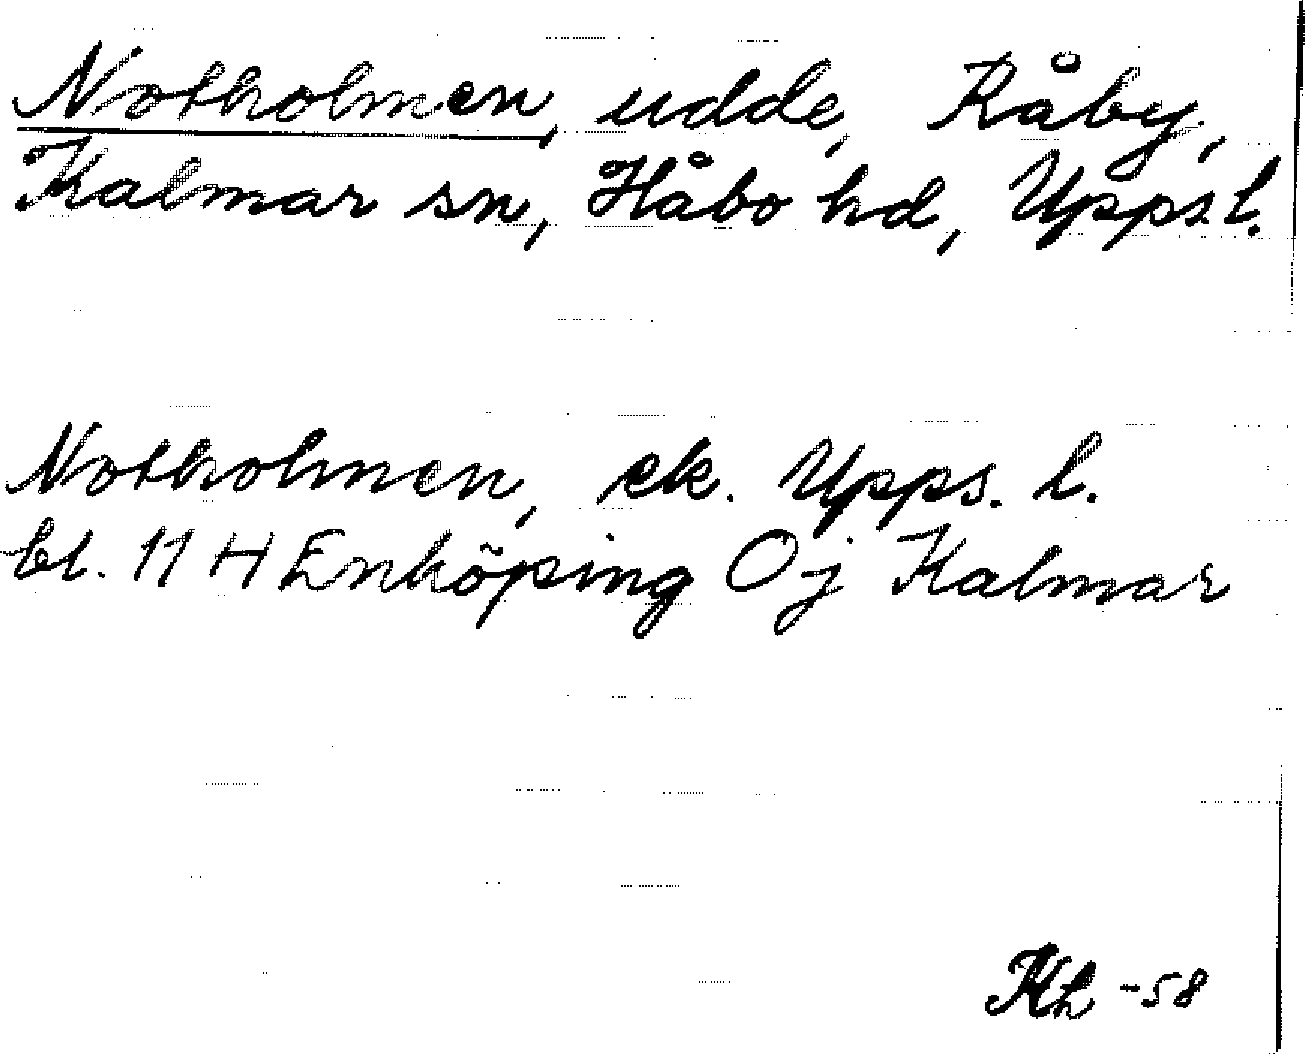 Notholmen, udde, Råby,
Kalmar sn, Håbo hd, Upps.l.
Notholmen, ek. Upps. l.
bl. 11 H Enköping Oj Kalmar
-58